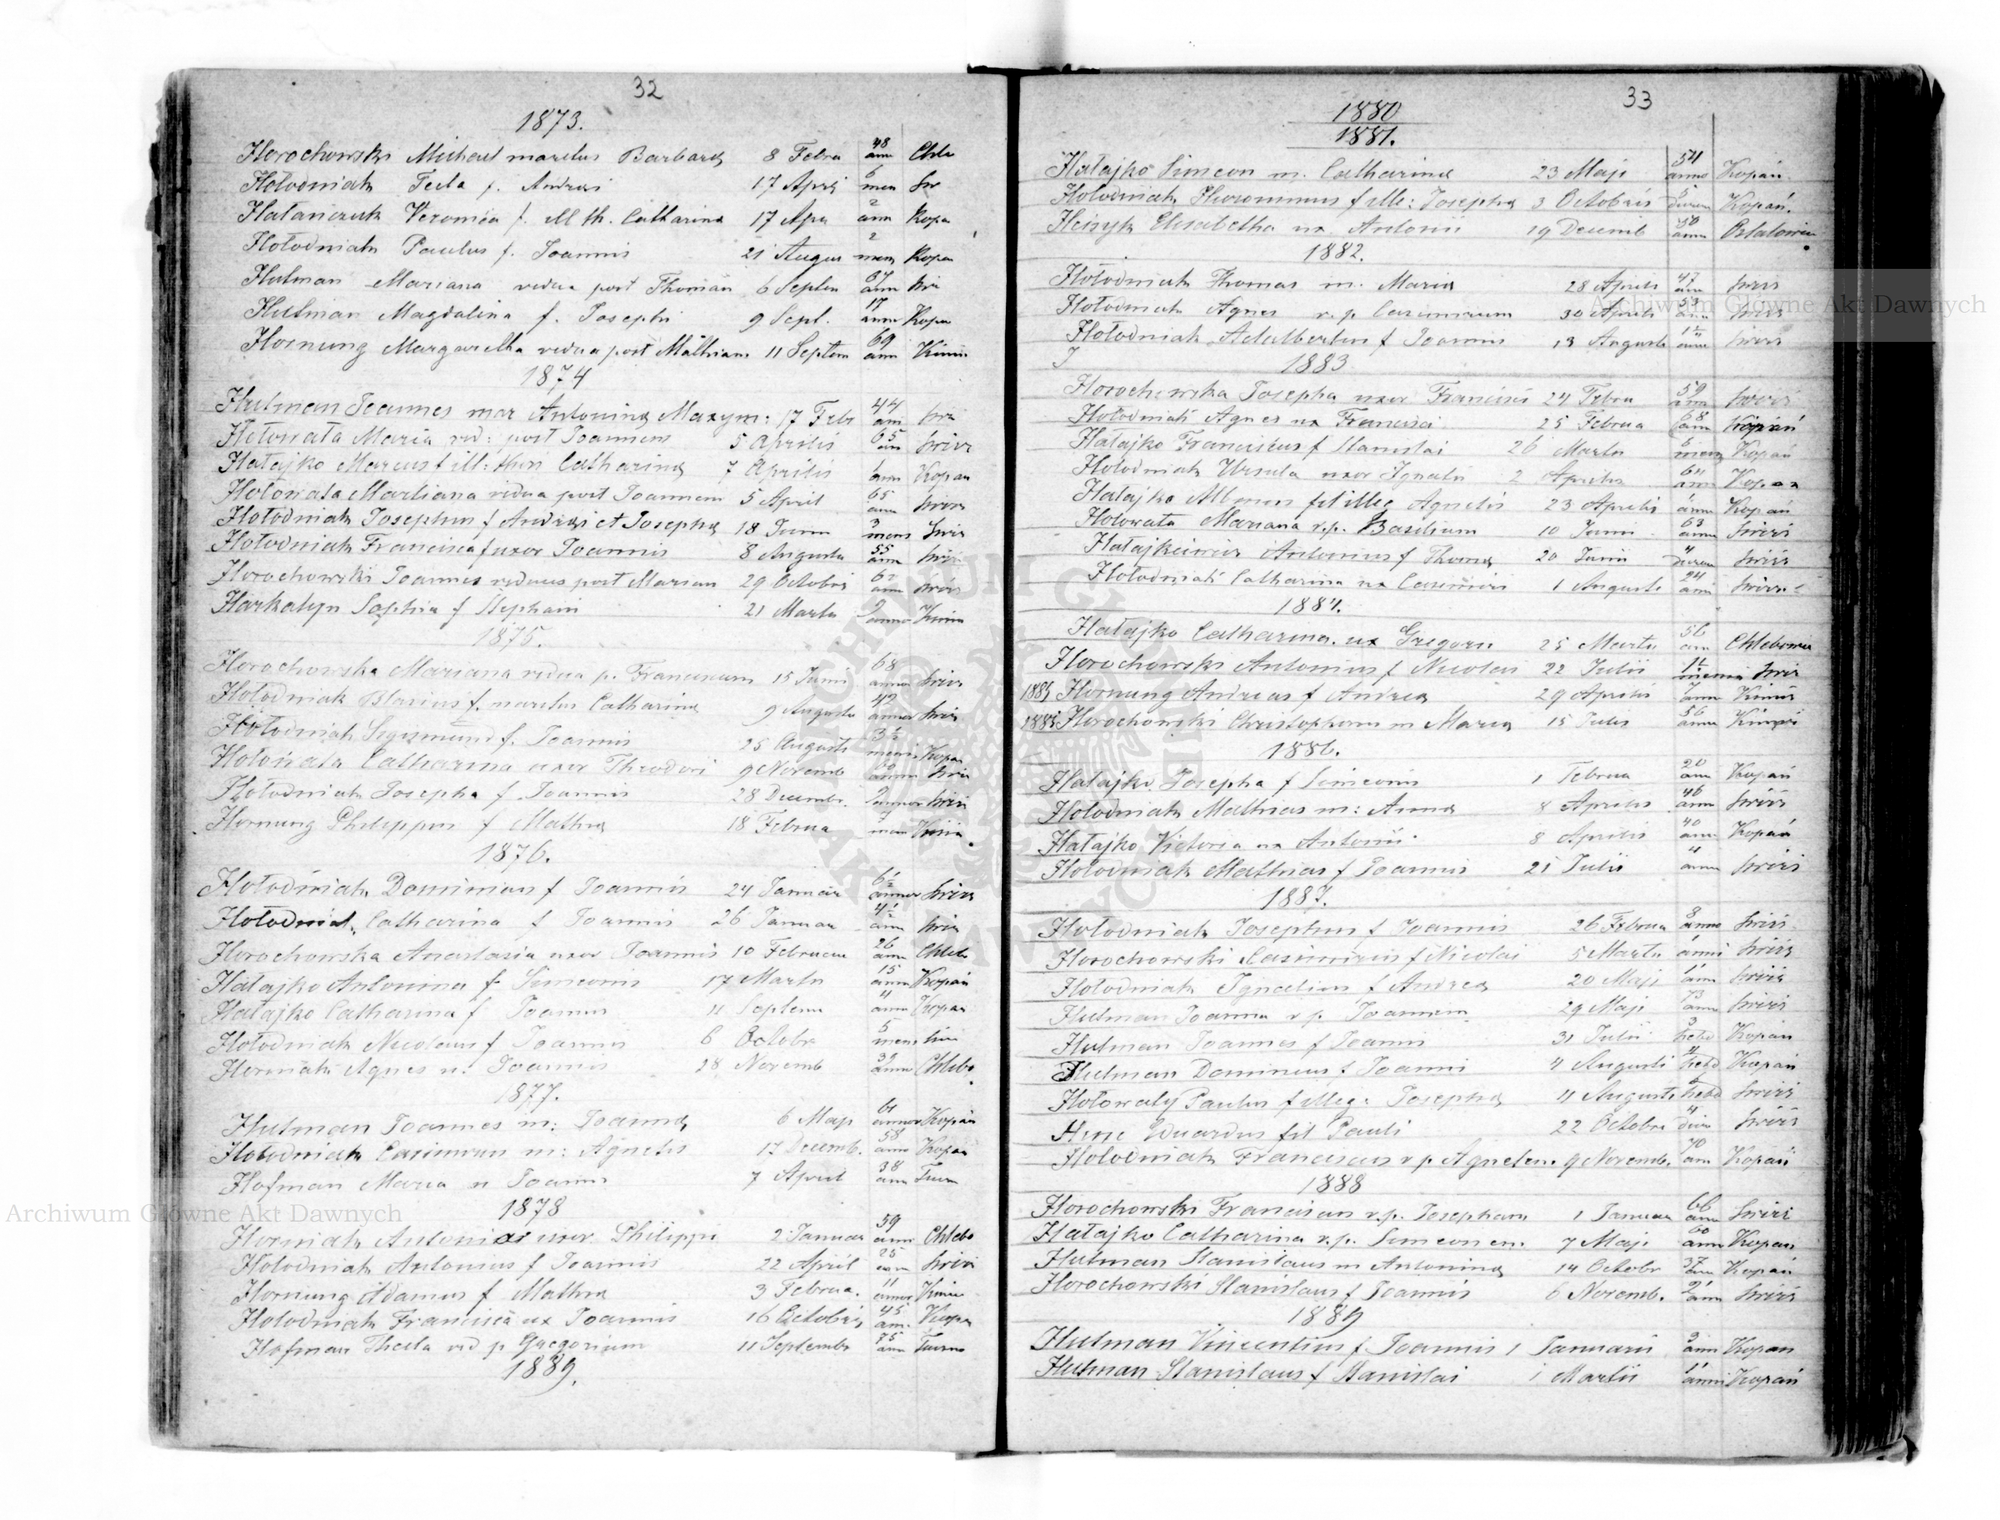 32
1873.
Horochowski Michael maritus Barbara 8 Febru 48 ann Chle
Hołodniak Tecla f. Andrei 17 April 6 men Swi
Hałańczuk Veronica f. M th. Catharina 17 Apri 2 ann Kopa
Hołodniak Paulus f. Joannis 21 Augus 2 mens Kopa
Hutman Mariana vidua post Thomam 6 Septem 67 ann Swi
Hutman Magdalina f. Josephi 9 Sept. 17 anno Kopa
Hornung Margaretha vidua post Mathiam 11 Septem 69 ann Kimi
1874
Hutman Joannes mar Antonina Maxym: 17 Febr 44 ann Swi
Hołowata Maria vid: post Joannem 5 Aprilis 65 ann Swirz
Hałajko Marcus f ill: thori Catharina 7 Aprilis ann Kopan
Hołowata Martiana vidua post Joannem 5 April 65 ann Swirz
Hołodniak Josephus f Andrei et Josepha 18 Junii 3 mens Swir
Hołodniak Francisca uxor Joannis 8 Augusta 55 ann Swir
Horochowski Joannes viduus post Mariam 29 Octobris ann Swirz
Harkatyn Sophia f Stephani 21 Martii 2 anno Kimir
1875.
Horochowska Mariana vidua p. Franciscum 15 Junii 68 annor Swirz
Hołodniak Blasius f. maritus Catharina 9 Augusta 42 annor Swirz
Hołodniak Sigismund f. Joannis 25 Augusti 3½ mens Kopan
Hołowata Catharina uxor Theodori 9 Novemb 60 annor Swirz
Hołodniak Josepha f. Joannis 28 Decembr. 2 annor Swirz
Hornung Philippus f Mathia 18 Februa mens Kimir
1876.
Hołodniak Dominicus f Joannis 24 Januar 6½ annor Swirz
Hołodniak Catharina f Joannis 26 Januar 4½ ann Swirz
Horochowska Anastasia uxor Joannis 10 Februar 26 ann Chleb
Hałajko Antonina f Simeonis 17 Martii 15 annor Kopań
Hałajko Catharina f Joannis 11 Septem ann Kopań
Hołodniak Nicolaus f Joannis 6 Octobr 5 mens Swir
Horniak Agnes u. Joannis 28 Novemb 32 ann Chleb.
1877.
Hutman Joannes m: Joanna 6 Maji 61 annor Kopań
Hołodniak Casimirus m: Agnetis 17 Decemb. 58 anno Kopan
Hofman Maria u Joannis 7 April 38 ann
1878
Horniak uxor Philippi 2 Januar 59 ann Chleb
Hołodniak Antonius f Joannis 22 April 25 ann Swirz
Hornung Adamus f Mathia 3 Februa. 11 annor Kimir
Hołodniak Francisca ux Joannis 16 Octobris 45 ann. Kopa
Hofman Thecla vid p Gregorium 11 Septembr 75 ann
1889.
33
1880
1881.
Hałajko Simeon m. Catharina 23 Maji 54 anno Kopań
Hołodniak Hieronimus f ille: Josepha 3 Octobris 5 dierum Kopań.
Henyk Elisabetha ux Antonii 19 Decemb 50 anno
1882.
Hołodniak Thomas m. Maria 28 Aprilis 47 ann Swirz
Hołodniak Agnes v.p. Casimirum 30 Aprilis 53 ann Swirz
Hołodniak Adalbertus f Joannis 13 Augusti 1½ ann Swirz
1883
Horochowska Josepha uxor Francisci 24 Febru 59 ann Swirz
Hołodniak Agnes ux Francisci 25 Februa 68 ann Kopań
Hałajko Franciscus f Stanislai 26 Martii 6 mens Kopań
Hołodniak Ursula uxor Ignatii 2 Aprilis 64 ann Kopan
Hałajko Albinus fil illeg Agnetis 23 Aprilis ann Kopań
Hołowata Mariana v.p. Basilium 10 Junii 63 anno Swirz
Hałajkiewicz Antonius f Thoma 20 Junii dierum Swirz
Hołodniak Catharina ux Casimiri 1 Augusti 24 ann Swirz
1884.
Hałajko Catharina ux Gregorii 25 Martii 56 ann Chlebowice
Horochowski Antonius f Nicolai 22 Julii 1½ mensis Swirz
1885 Hornung Andreas f Andrea 29 Aprilis ann Kimir
1885 Horochowski Christophorus m Maria 15 Julii 56 anno Kimir
1886.
Hałajko Josepha f Simeonis 1 Februa 20 ann Kopań
Hołodniak Mathias m: Anna 8 Aprilis 46 ann Swirz
Hałajko Victoria ux Antonii 8 Aprilis 40 ann Kopań
Hołodniak Mathias f Joannis 21 Julii ann Swirz
1887.
Hołodniak Josephus f Joannis 26 Februa 8 anno Swirz
Horochowski Casimirus f Nicolai 5 Martii anni Swirz
Hołodniak Ignatius f Andrea 20 Maji 1 ann Swirz
Hutman Joanna v p. Joannem 29 Maji 73 ann Swirz
Hutman Joannes f Joannis 31 Julii 3 hebd Kopań
Hutman Dominicus f Joannis 4 Augusti hebd Kopań
Hołowaty Paulus f illeg: Josepha 11 Augusti hebd Swirz
Eduardus fil Pauli 22 Octobr Swirz
Hołodniak Franciscus v p. Agneten. 9 Novemb. 70 ann Kopań
1888
Horochowski Franciscus v.p. Josepham 1 Januar 66 ann Swirz
Hałajko Catharina v.p. Simeonem. 7 Maji 60 ann Kopan
Hutman Stanislaus m Antonina 14 Octobr 37 ann Kopań
Horochowski Stanislaus f Joannis 6 Novemb. 2 ann Swirz
1889
Hutman Vincentius f Joannis 1 Januarii 2 ann Kopań
Hutman Stanislaus f Stanislai 1 Martii 1 anni Kopań
Archiwum Główne Akt Dawnych
Archiwum Główne Akt Dawnych
ARCHIWUM GŁÓWNE AKT DAWNYCH